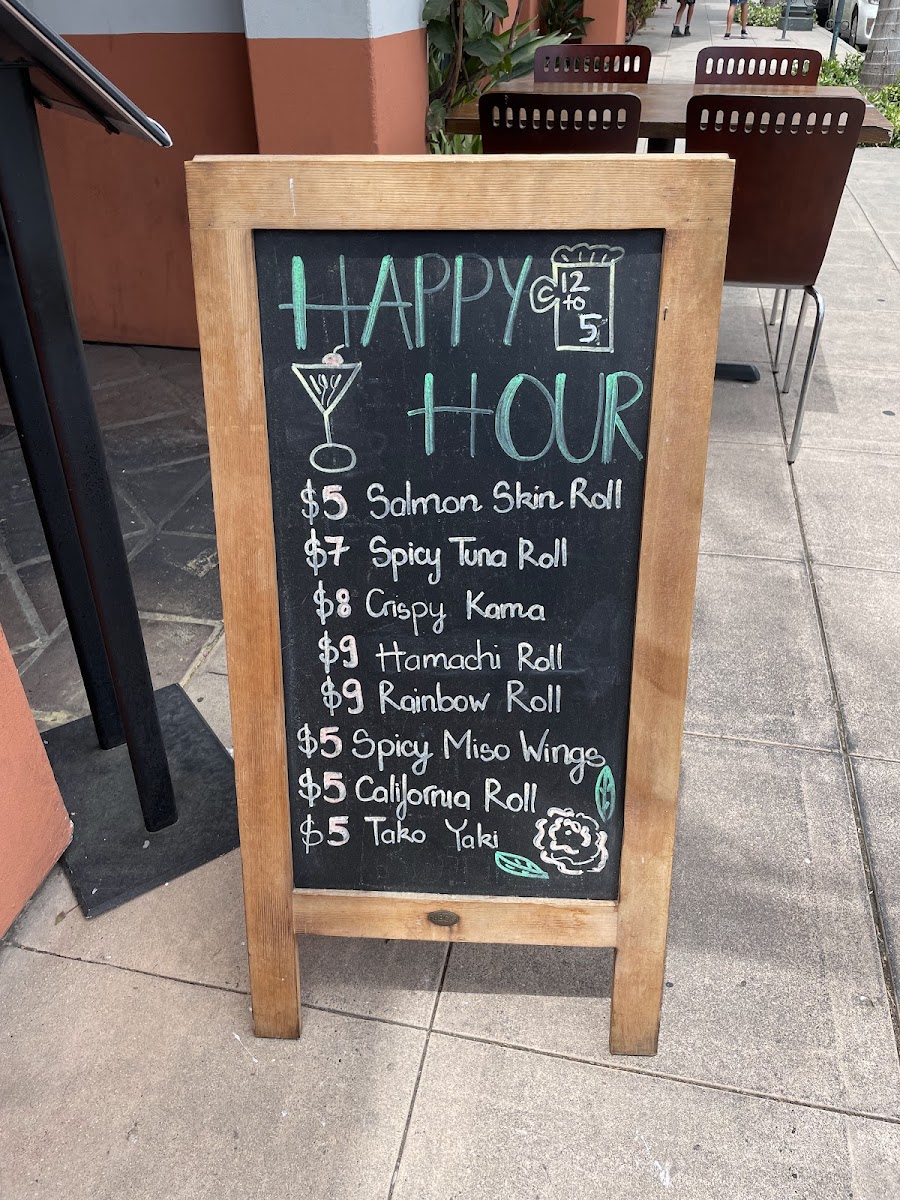 HAPPY
12
to
5
HOUR
$5 Salmon Skin Roll
$7 Spicy Tuna Roll
$8 Crispy Kama
$9 Hamachi Roll
$9 Rainbow Roll
$5 Spicy Miso Wings
$5 California Roll
$5 Tako Yaki